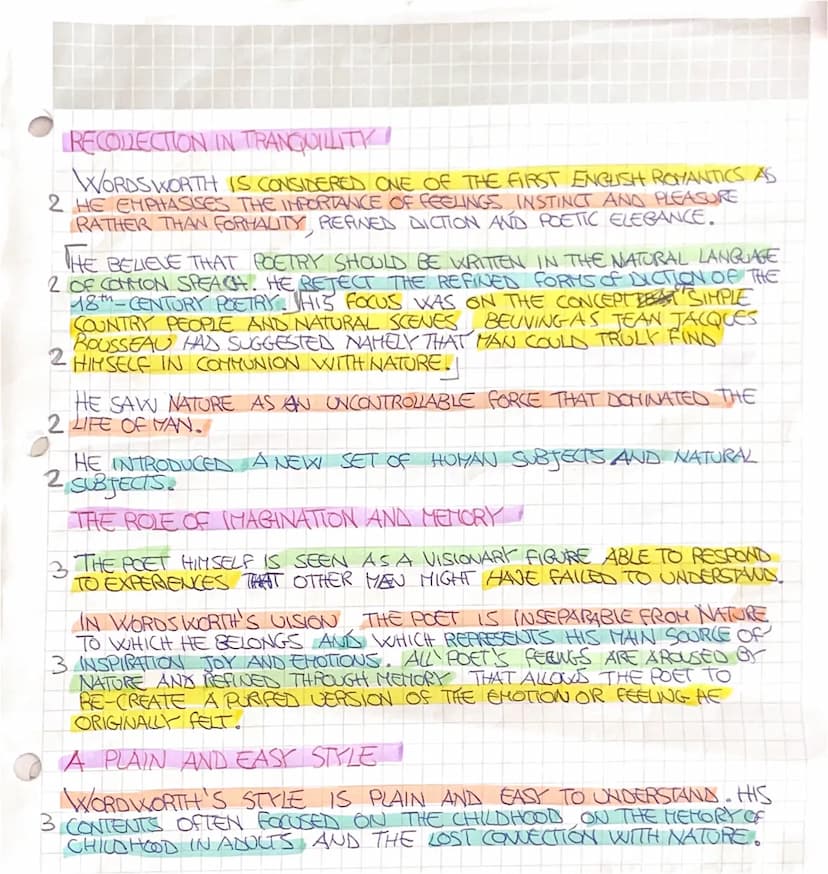 RECOLLECTION IN TRANQUILLITY
WORDSWORTH IS CONSIDERED ONE OF THE FIRST ENGLISH ROMANTICS AS
2 HE EMPHASISES THE IMPORTANCE OF FEELINGS INSTINCT AND PLEASURE
RATHER THAN FORMALITY, REFINED DICTION AND POETIC ELEGANCE.
HE BELIEVE THAT POETRY SHOULD BE WRITTEN IN THE NATURAL LANGUAGE
2 OF COMMON SPEACH. HE REJECT THE REFINED FORMS OF DICTION OF THE
18th-CENTURY POETRY. HIS FOCUS WAS ON THE CONCEPT SIMPLE
COUNTRY PEOPLE AND NATURAL SCENES, BELIVING AS JEAN JACQUES
ROUSSEAU HAD SUGGESTED NAMELY THAT MAN COULD TRULY FIND
2 HIMSELF IN COMMUNION WITH NATURE.
HE SAW NATURE AS AN UNCONTROLLABLE FORCE THAT DOMINATED THE
2 LIFE OF MAN.
HE INTRODUCED A NEW SET OF HUMAN SUBJECTS AND NATURAL
2 SUBJECTS.
THE ROLE OF IMAGINATION AND MEMORY
3 THE POET HIMSELF IS SEEN AS A VISIONARY FIGURE ABLE TO RESPOND
TO EXPERIENCES THAT OTHER MEN MIGHT HAVE FAILED TO UNDERSTAND.
IN WORDSWORTH'S VISION, THE POET IS INSEPARABLE FROM NATURE
TO WHICH HE BELONGS AND WHICH REPRESENTS HIS MAIN SOURCE OF
3 INSPIRATION JOY AND EMOTIONS. ALL POET'S FEELINGS ARE AROUSED BY
NATURE AND REFINED THROUGH MEMORY THAT ALLOWS THE POET TO
RE-CREATE A PURIFED VERSION OF THE EMOTION OR FEELING HE
ORIGINALLY FELT.
A PLAIN AND EASY STYLE
WORDWORTH'S STYLE IS PLAIN AND EASY TO UNDERSTAND. HIS
3 CONTENTS OFTEN FOCUSED ON THE CHILDHOOD ON THE MEMORY OF
CHILDHOOD IN ADULTS AND THE LOST CONNECTION WITH NATURE.